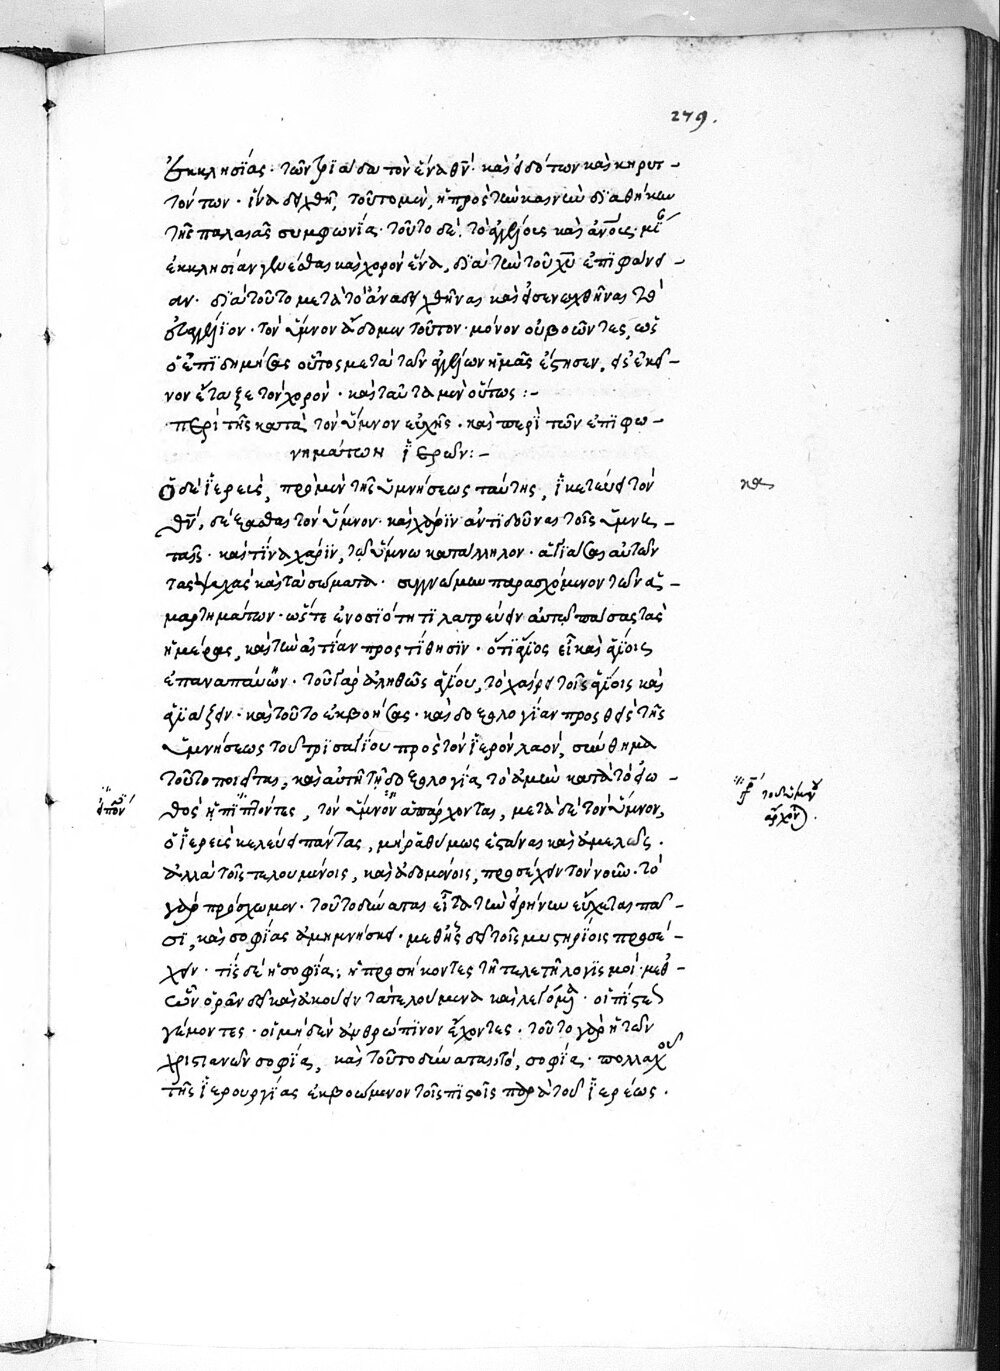 279.
ἐκκλησίας· τῶν τριάδα τὸν ἕνα θν̄· καὶ εἰδότων καὶ κηρυτ-
τόντων· ἵνα δειχθῆ, τοῦτο μὲν, ἡ πρὸς τὴν καινὴν διαθήκην
τῆς παλαιᾶς συμφωνία· τοῦτο δὲ, τὸ ἀγγέλοις καὶ ἀνοις μίαν
ἐκκλησίαν γενέσθαι καὶ χορὸν ἕνα, διὰ τὴν τοῦ χυ ἐπιφάνει-
αν· διὰ τοῦτο μετὰ τὸ ἀναδειχθῆναι καὶ εἰσενεχθῆναι τὸ
εὐαγγέλιον· τὸν ὕμνον ἄδομεν τοῦτον· μόνον οὐ βοῶντες, ὡς
ὁ ἐπιδημήσας οὗτος μετὰ τῶν ἀγγέλων ἡμᾶς ἔστησεν, εἰς ἐκεῖ-
νον ἔταξε τὸν χορόν· καὶ ταῦτα μὲν οὕτως:-
περὶ τῆς κατὰ τὸν ὕμνον εὐχῆς· καὶ περὶ τῶν ἐπιφω-
νημάτων ἱερῶν:-
Ὁ δὲ ἱερεὺς, πρὸ μὲν τῆς ὑμνήσεως ταύτης, ἱκετεύει τὸν κθ
θν̄, δέξασθαι τὸν ὕμνον· καὶ χάριν ἀντιδοῦναι τοῖς ὑμνη-
ταῖς· καὶ τίνα χάριν, τῶ ὕμνω κατάλληλον· ἁγιάσαι αὐτῶν
τὰς ψυχὰς καὶ τὰ σώματα· συγγνώμην παρασχόμενον τῶν ἁ-
μαρτημάτων· ὥστε ἐν ὁσιότητι λατρεύειν αὐτῶ πάσας τὰς
ἡμέρας, καὶ τὴν αἰτίαν προστίθησιν· ὅτι ἅγιος εἶ καὶ ἁγίοις
ἐπαναπαύων· τοῦ γὰρ ἀληθῶς ἁγίου, τὸ χαίρειν τοῖς ἁγίοις καὶ
ἁγιάζειν· καὶ τοῦτο ἐκβοήσας· καὶ δοξολογίαν προσθεὶς τῆς
ὑμνήσεως τοῦ τρισαγίου πρὸς τὸν ἱερὸν λαὸν, σύνθημα
τοῦτο ποιεῖται, καὶ αὐτῆ τῆ δοξολογία τὸ ἀμὴν κατὰ τὸ εἰω-
θὸς ἐπιπλόντες, τὸν ὕμνον ἀπάρχονται, μετὰ δὲ τὸν ὕμνον,
εἰπόν
τοῦ ὕμνου
ἄρχον
ὁ ἱερεὺς κελεύει πάντας, μὴ ραθύμως ἑστάναι καὶ ἀμελῶς·
ἀλλὰ τοῖς τελουμένοις, καὶ ἀδομένοις, προσέχειν τὸν νοῦν· τὸ
γὰρ πρόσχωμεν· τοῦτο δύναται εἶτα τὴν εἰρήνην εὔχεται πᾶ-
σι, καὶ σοφίας ἀμημνήσκει· μεθ' ἧς δεῖ τοῖς μυστηρίοις προσέ-
χειν· τίς δὲ ἡ σοφία; ἡ προσήκοντες τῆ τελετῆ λογισμοί· μεθ'
ὧν ὁρᾶν δεῖ καὶ ἀκούειν τὰ τελούμενα καὶ λεγόμενα· οἱ πίστεως
γέμοντες· οἱ μηδὲν ἀνθρώπινον ἔχοντες· τοῦτο γὰρ ἡ τῶν
χριστιανῶν σοφία, καὶ τοῦτο δύναται τὸ, σοφία· πολλαχοῦ
τῆς ἱερουργίας ἐκβοώμενον τοῖς πιστοῖς παρὰ τοῦ ἱερέως.